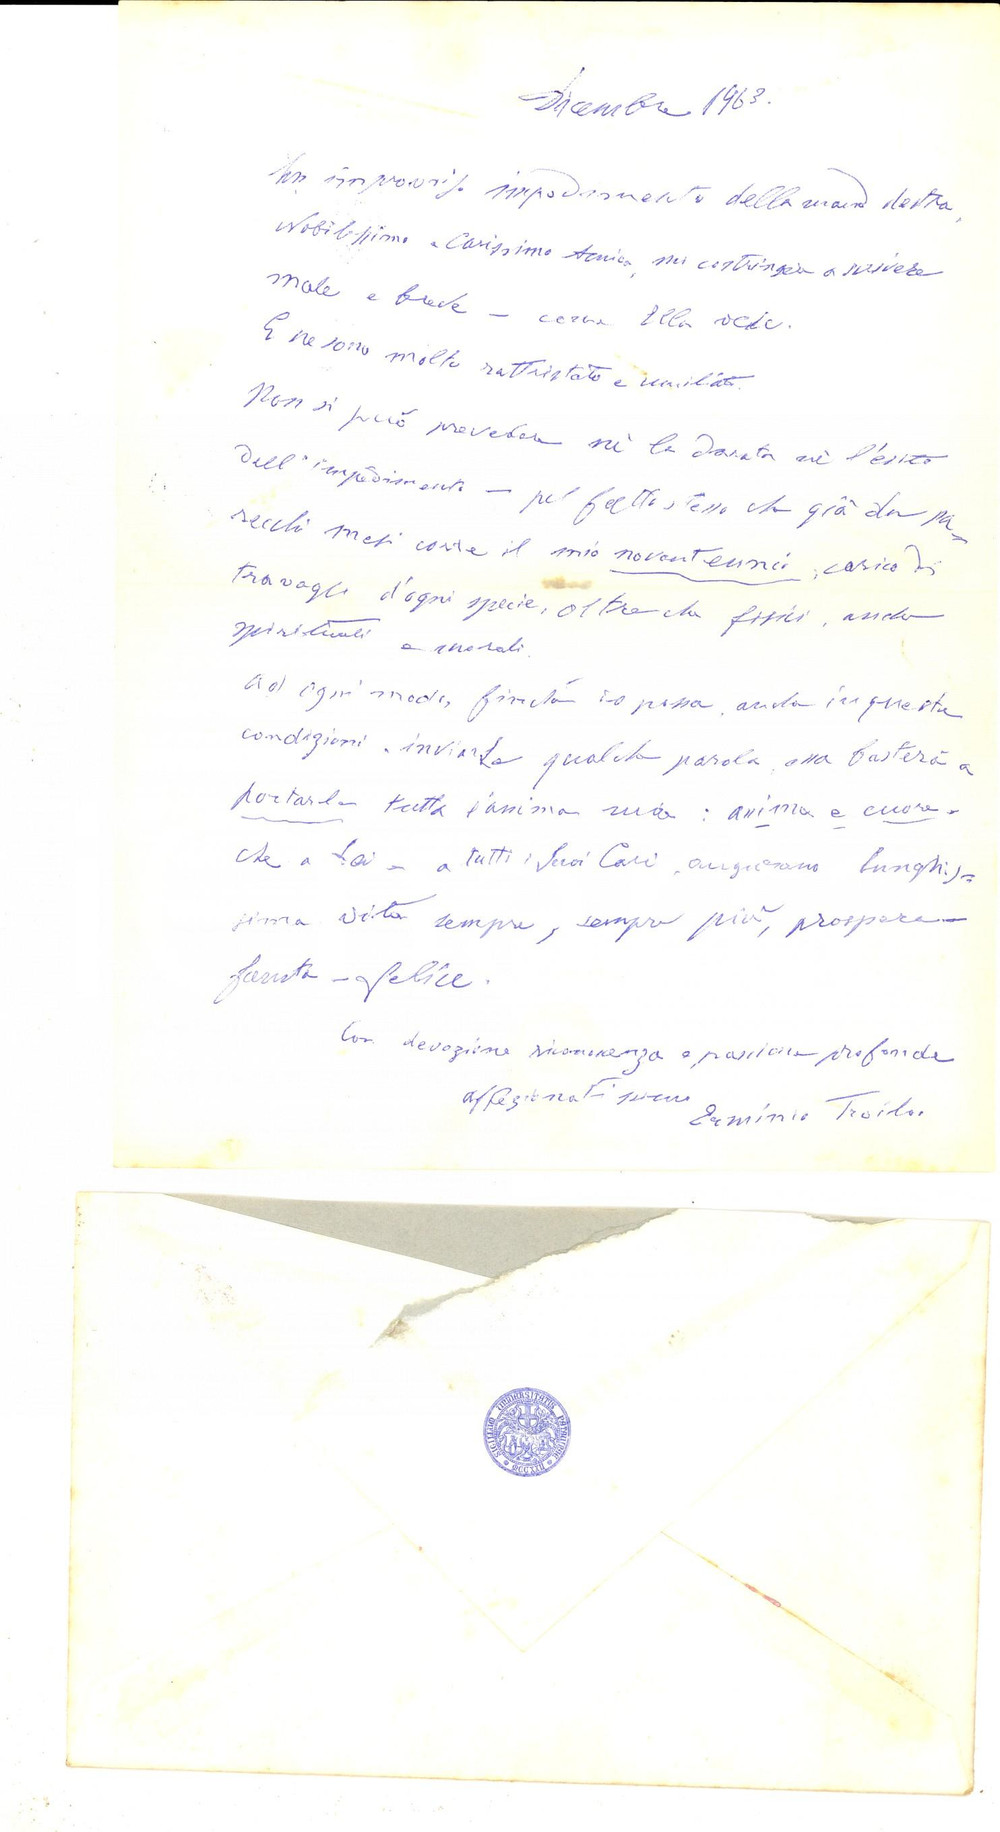 Dicembre 1963.
Un improvviso impedimento della mano destra,
Nobilissimo e Carissimo Amico, mi costringe a scrivere
male e breve — come Ella vede.
E ne sono molto rattristato e umiliato.
Non si può prevedere nè la durata nè l'esito
dell'impedimento — pel fatto stesso che già da pa-
recchi mesi corre il mio novantennio, carico di
travagli d'ogni specie, oltre che fisici, anche
spirituali e morali.
Ad ogni modo, finchè io possa, anche in queste
condizioni, inviarLe qualche parola, essa basterà a
portarLe tutta l'anima mia: anima e cuore -
che a Lei — a tutti i Suoi Cari, augurano lunghis-
sima vita sempre, sempre più, prospera —
fausta — felice.
Con devozione riconoscenza e passione profonde
affezionatissimo Erminio Troilo.
SIGILLUM UNIVERSITATIS PATAVINAE
MCCXXII